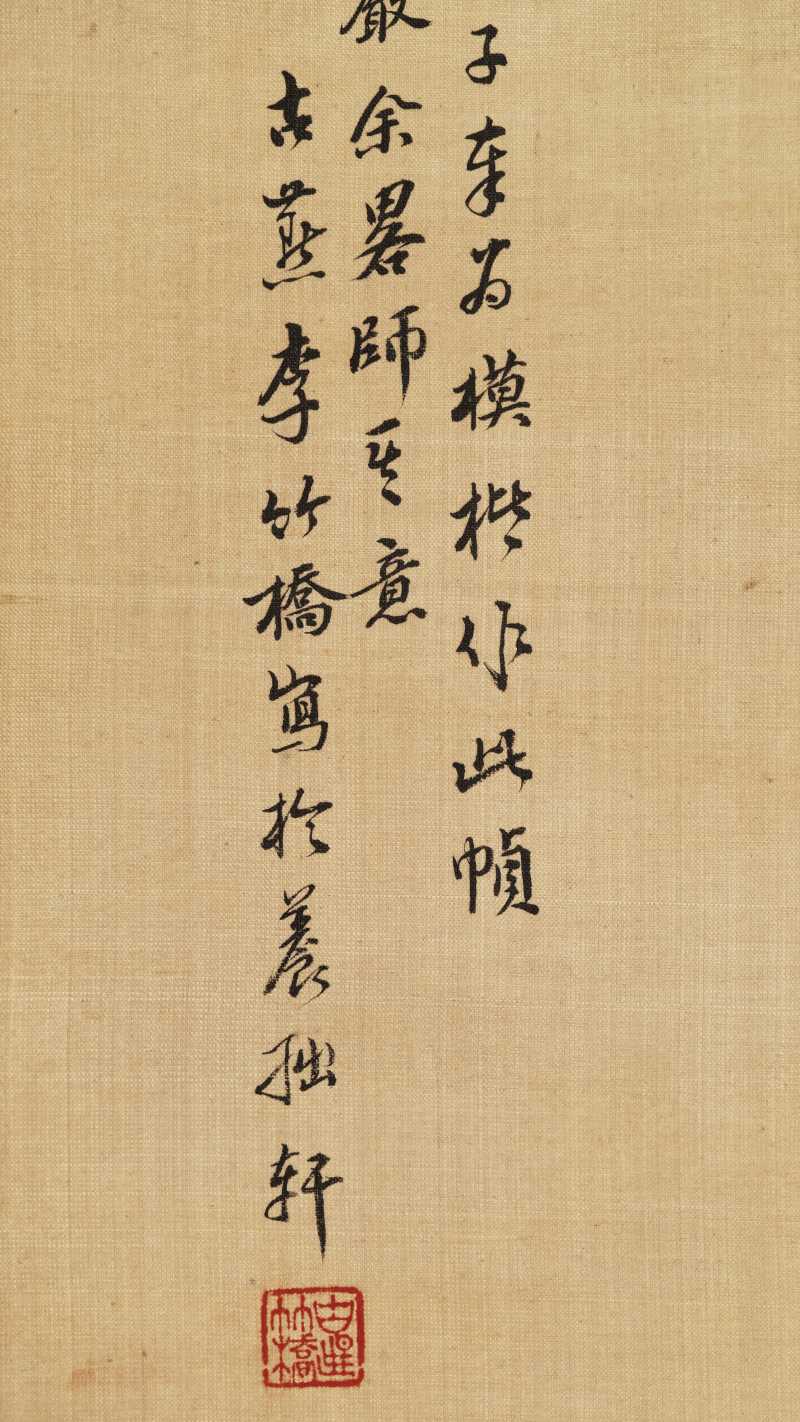 子奉為模楷作此幀
嚴余畧師其意
古燕李竹橋寫於養拙軒
竹橋